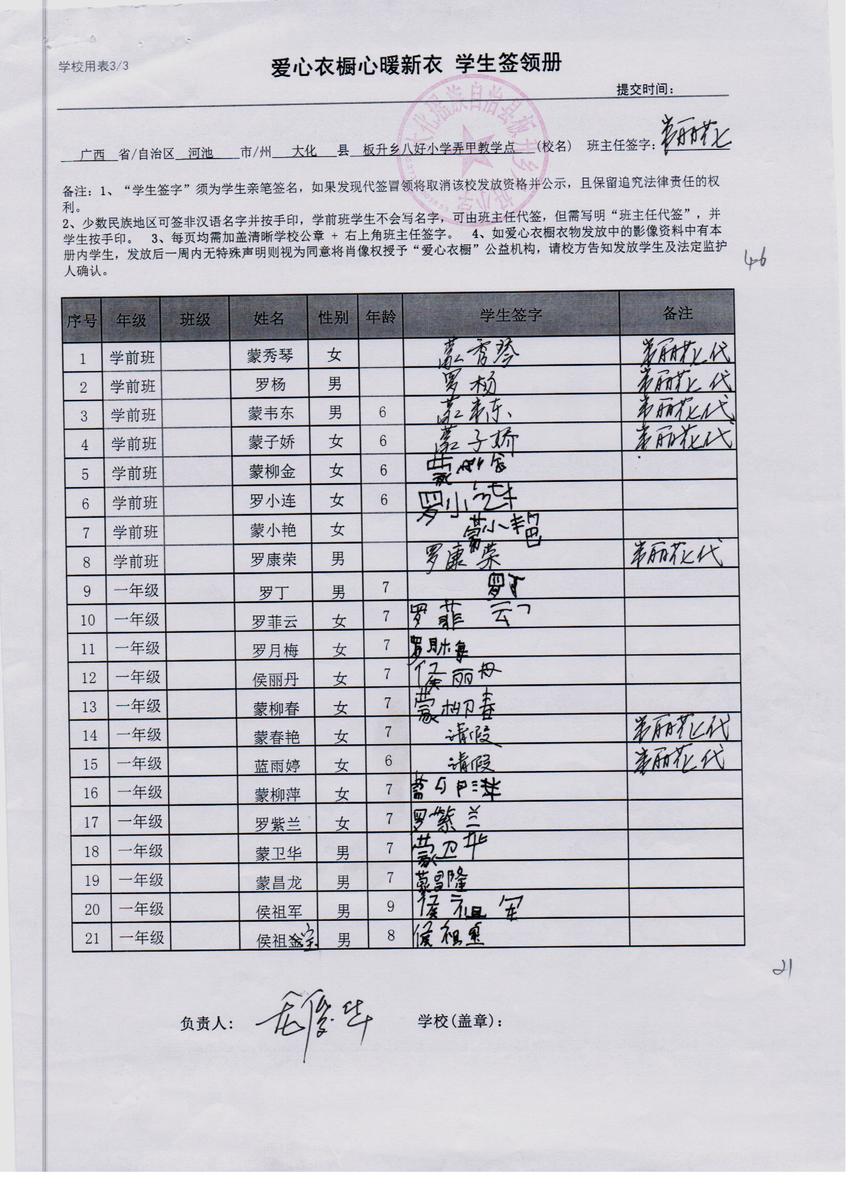 学校用表3/3
爱心衣橱心暖新衣 学生签领册
提交时间：
广西 省/自治区 河池 市/州 大化 县 板升乡八好小学弄甲教学点 (校名) 班主任签字：
备注：1、“学生签字”须为学生亲笔签名，如果发现代签冒领将取消该校发放资格并公示，且保留追究法律责任的权
利。
2、少数民族地区可签非汉语名字并按手印，学前班学生不会写名字，可由班主任代签，但需写明“班主任代签”，并
学生按手印。 3、每页均需加盖清晰学校公章 + 右上角班主任签字。 4、如爱心衣橱衣物发放中的影像资料中有本
册内学生，发放后一周内无特殊声明则视为同意将肖像权授予“爱心衣橱”公益机构，请校方告知发放学生及法定监护
人确认。
46
序号 年级 班级 姓名 性别 年龄 学生签字 备注
1 学前班 蒙秀琴 女 蒙秀琴
2 学前班 罗杨 男 罗杨
3 学前班 蒙韦东 男 6 蒙韦东
4 学前班 蒙子娇 女 6 蒙子娇
5 学前班 蒙柳金 女 6 蒙柳金
6 学前班 罗小连 女 6 罗小连
7 学前班 蒙小艳 女 蒙小艳
8 学前班 罗康荣 男 罗康荣
9 一年级 罗丁 男 7 罗丁
10 一年级 罗菲云 女 7 罗菲云
11 一年级 罗月梅 女 7 罗月梅
12 一年级 侯丽丹 女 7 侯丽丹
13 一年级 蒙柳春 女 7 蒙柳春
14 一年级 蒙春艳 女 7 请假
15 一年级 蓝雨婷 女 6 请假
16 一年级 蒙柳萍 女 7
17 一年级 罗紫兰 女 7 罗紫兰
18 一年级 蒙卫华 男 7 蒙卫华
19 一年级 蒙昌龙 男 7 蒙昌隆
20 一年级 侯祖军 男 9 侯祖军
21 一年级 侯祖宝 男 8 侯祖宝
21
负责人： 学校(盖章)：